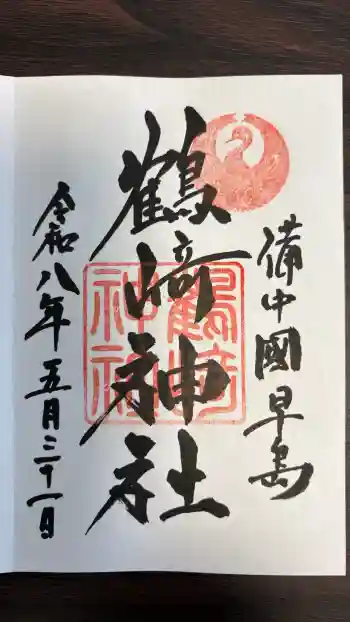 備中國早島
鶴﨑神社
鶴﨑神社
令和八年五月二十一日